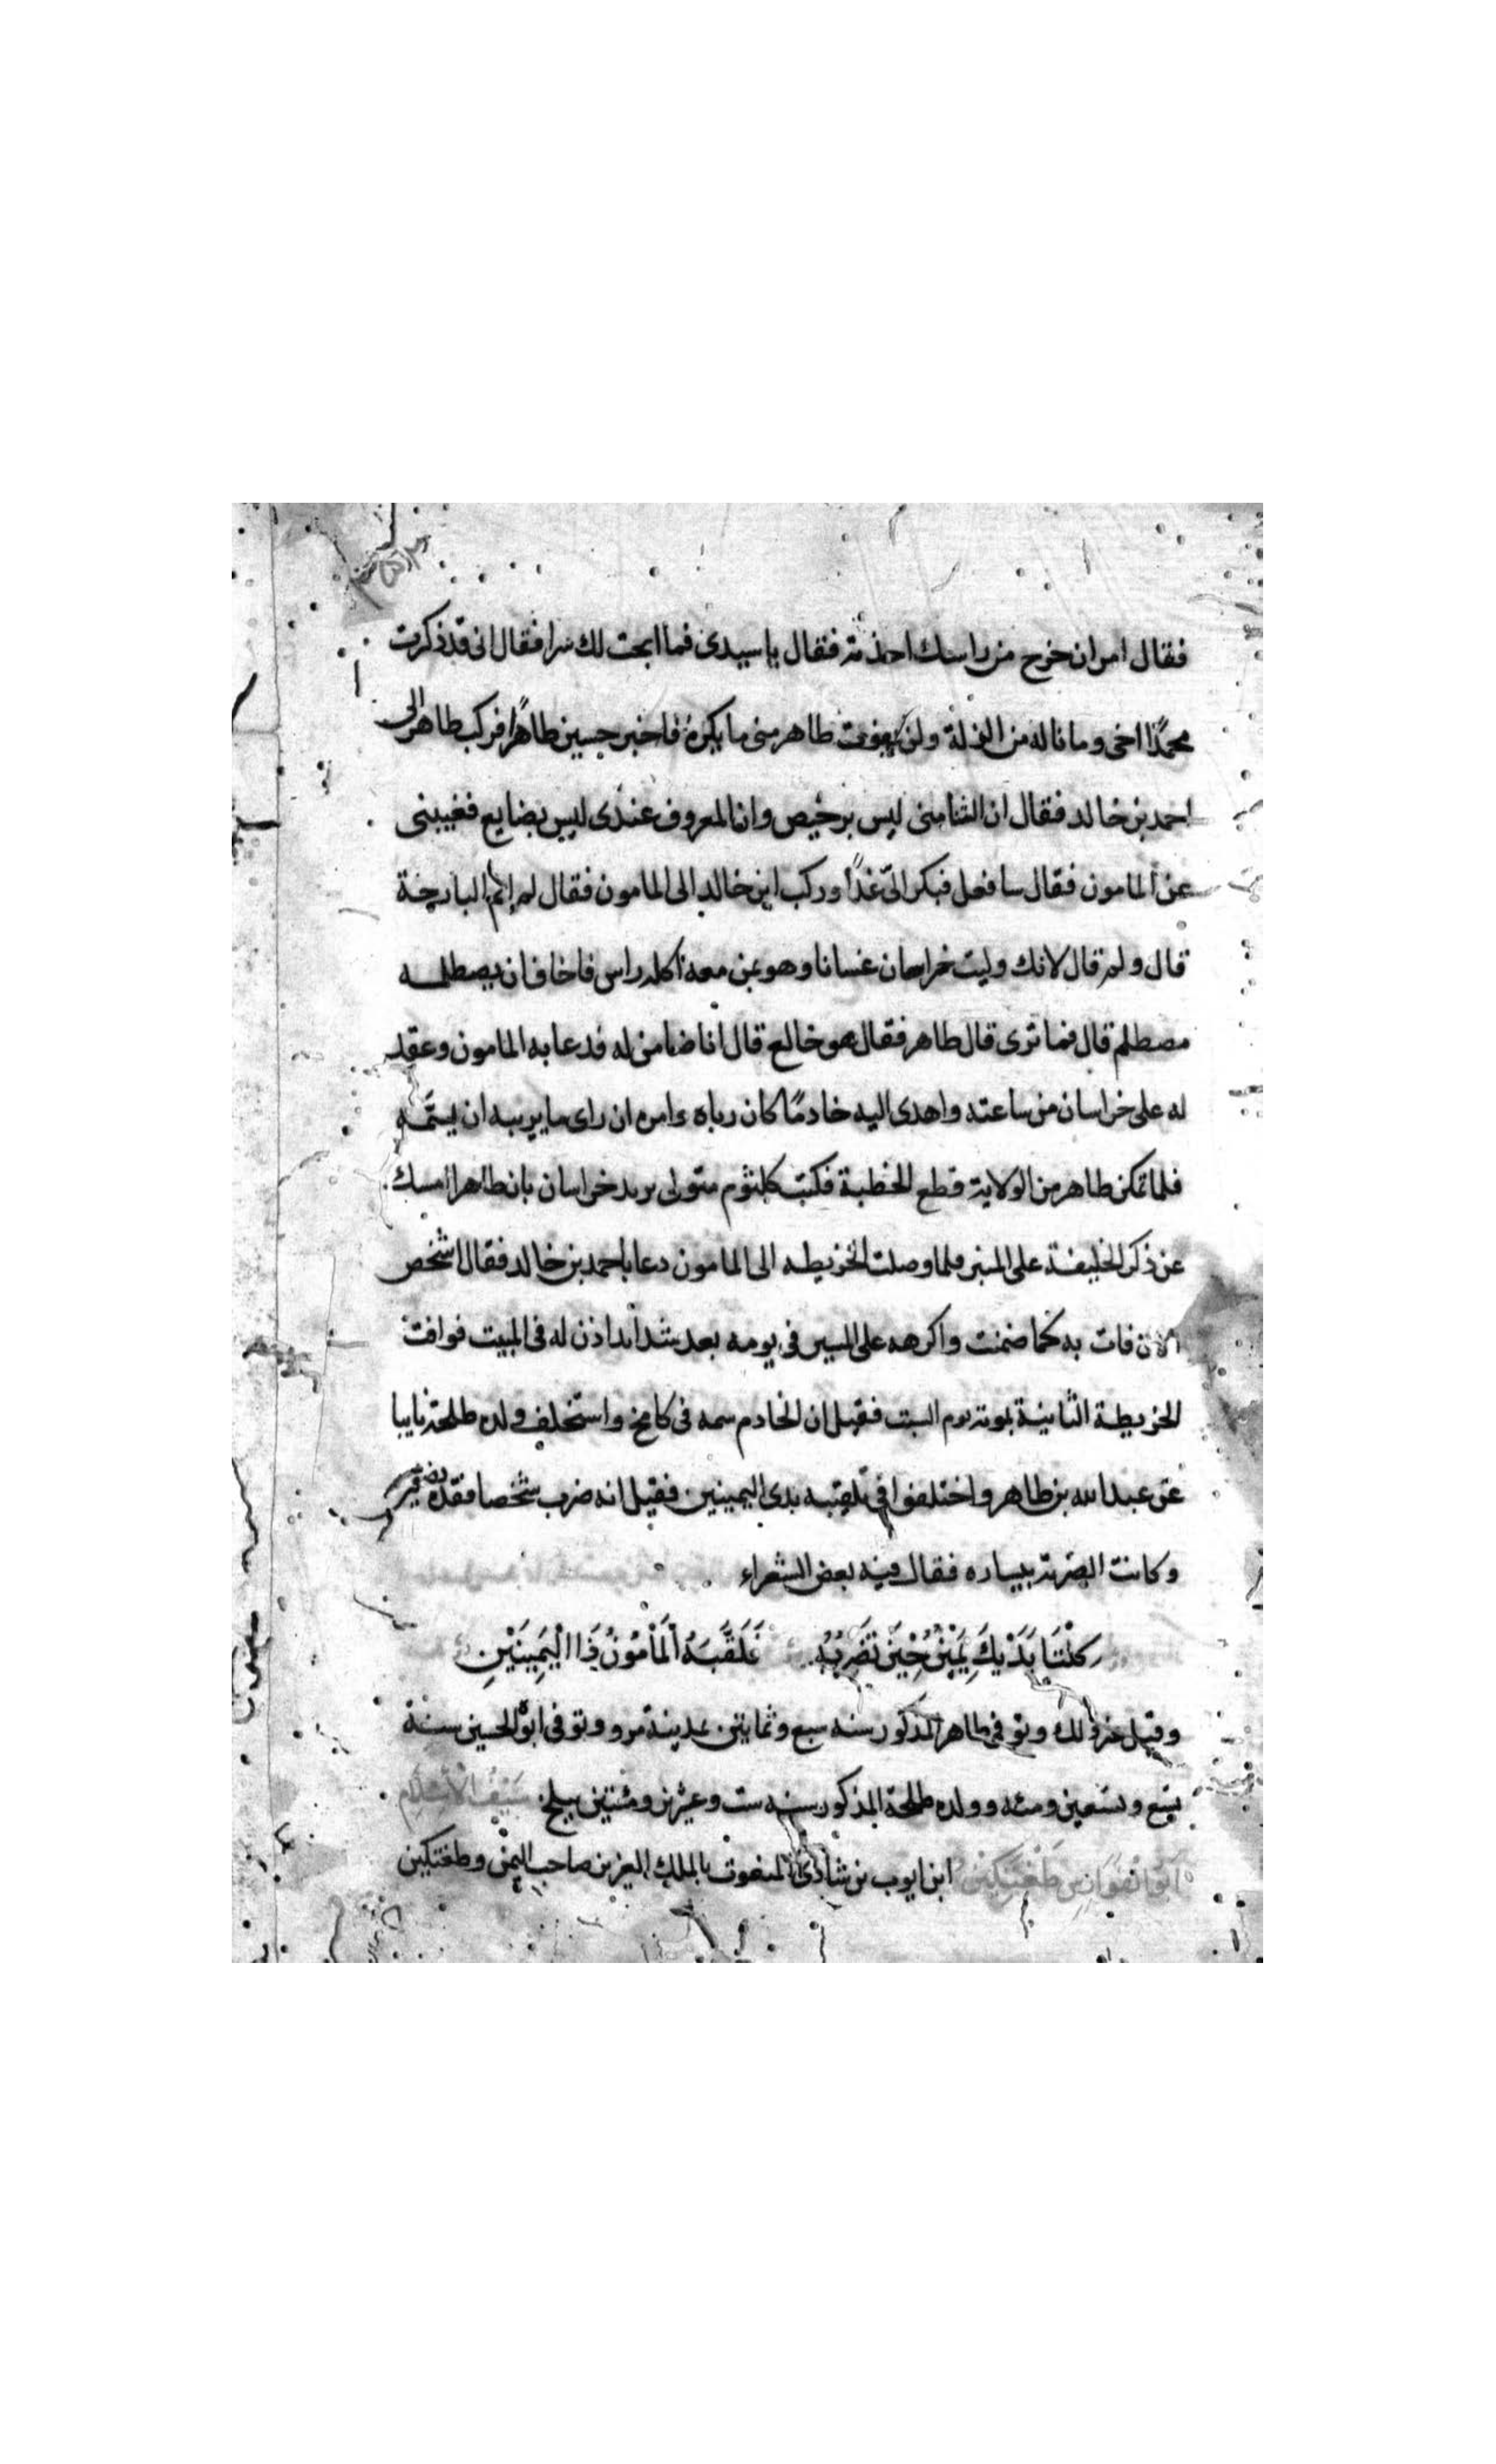 فقال امر ان خرج من راسك اخذته فقال يا سيدى فما ابحت لك سرا فقال انى قد ذكرت
محمدًا اخى وما ناله من الذلة ولن يفوت طاهر منى ما يكره فاخبر حسين طاهرًا فركب طاهر الى
احمد بن خالد فقال ان الثنا منى ليس برخيص وان المعروف عندى ليس بضايع فغيبنى
عن المامون فقال سافعل فبكر الىّ غدًا وركب ابن خالد الى المامون فقال لم انم البارحة
قال ولم قال لانك وليت خراسان غسانا وهو ومن معه اكلة راس فاخاف ان يصطلمه
مصطلم قال فما ترى قال طاهر فقال هو خالع قال انا ضامن له فدعا به المامون وعقد
له على خراسان من ساعته واهدى اليه خادمًا كان رباه وامره ان راى ما يريبه ان يسمّه
فلما تمكن طاهر من الولاية قطع الخطبة فكتب كلثوم متولى بريد خراسان بان طاهرا امسك
عن ذكر الخليفة على المنبر فلما وصلت الخريطه الى المامون دعا باحمد بن خالد فقال اشخص
الان فات به كما ضمنت واكرهه على المسير فى يومه بعد شدائد اذن له فى المبيت فوافت
الخريطة الثانية بموته يوم السبت فقيل ان الخادم سمه فى كامخ واستخلف ولده طلحة نايبا
عن عبد الله بن طاهر واختلفوا فى تلقيبه بذى اليمينين فقيل انه ضرب شخصا فقده نصفين
وكانت الضربة بيساره فقال فيه بعض الشعراء
كِلْتَا يَدَيْكَ يَمِيْنٌ حِيْنَ تَضْرِبُهُ فَلَقَّبَهُ اَلْمَأْمُوْنُ ذَا الْيَمِيْنَيْنِ
وقيل غير ذلك وتوفى طاهر المذكور سنه سبع ومايتين بمدينة مرو وتوفى ابوه الحسين سنة
تسع وتسعين ومئه وولده طلحة المذكور سنه ست وعشرين ومئتين ببلخ سَيْفُ الْاِسْلَامِ
اَبُو الْفَوَارِسِ طُغْتِكِيْنُ ابن ايوب بن شاذى المنعوت بالملك العزيز صاحب اليمن وطغتكين